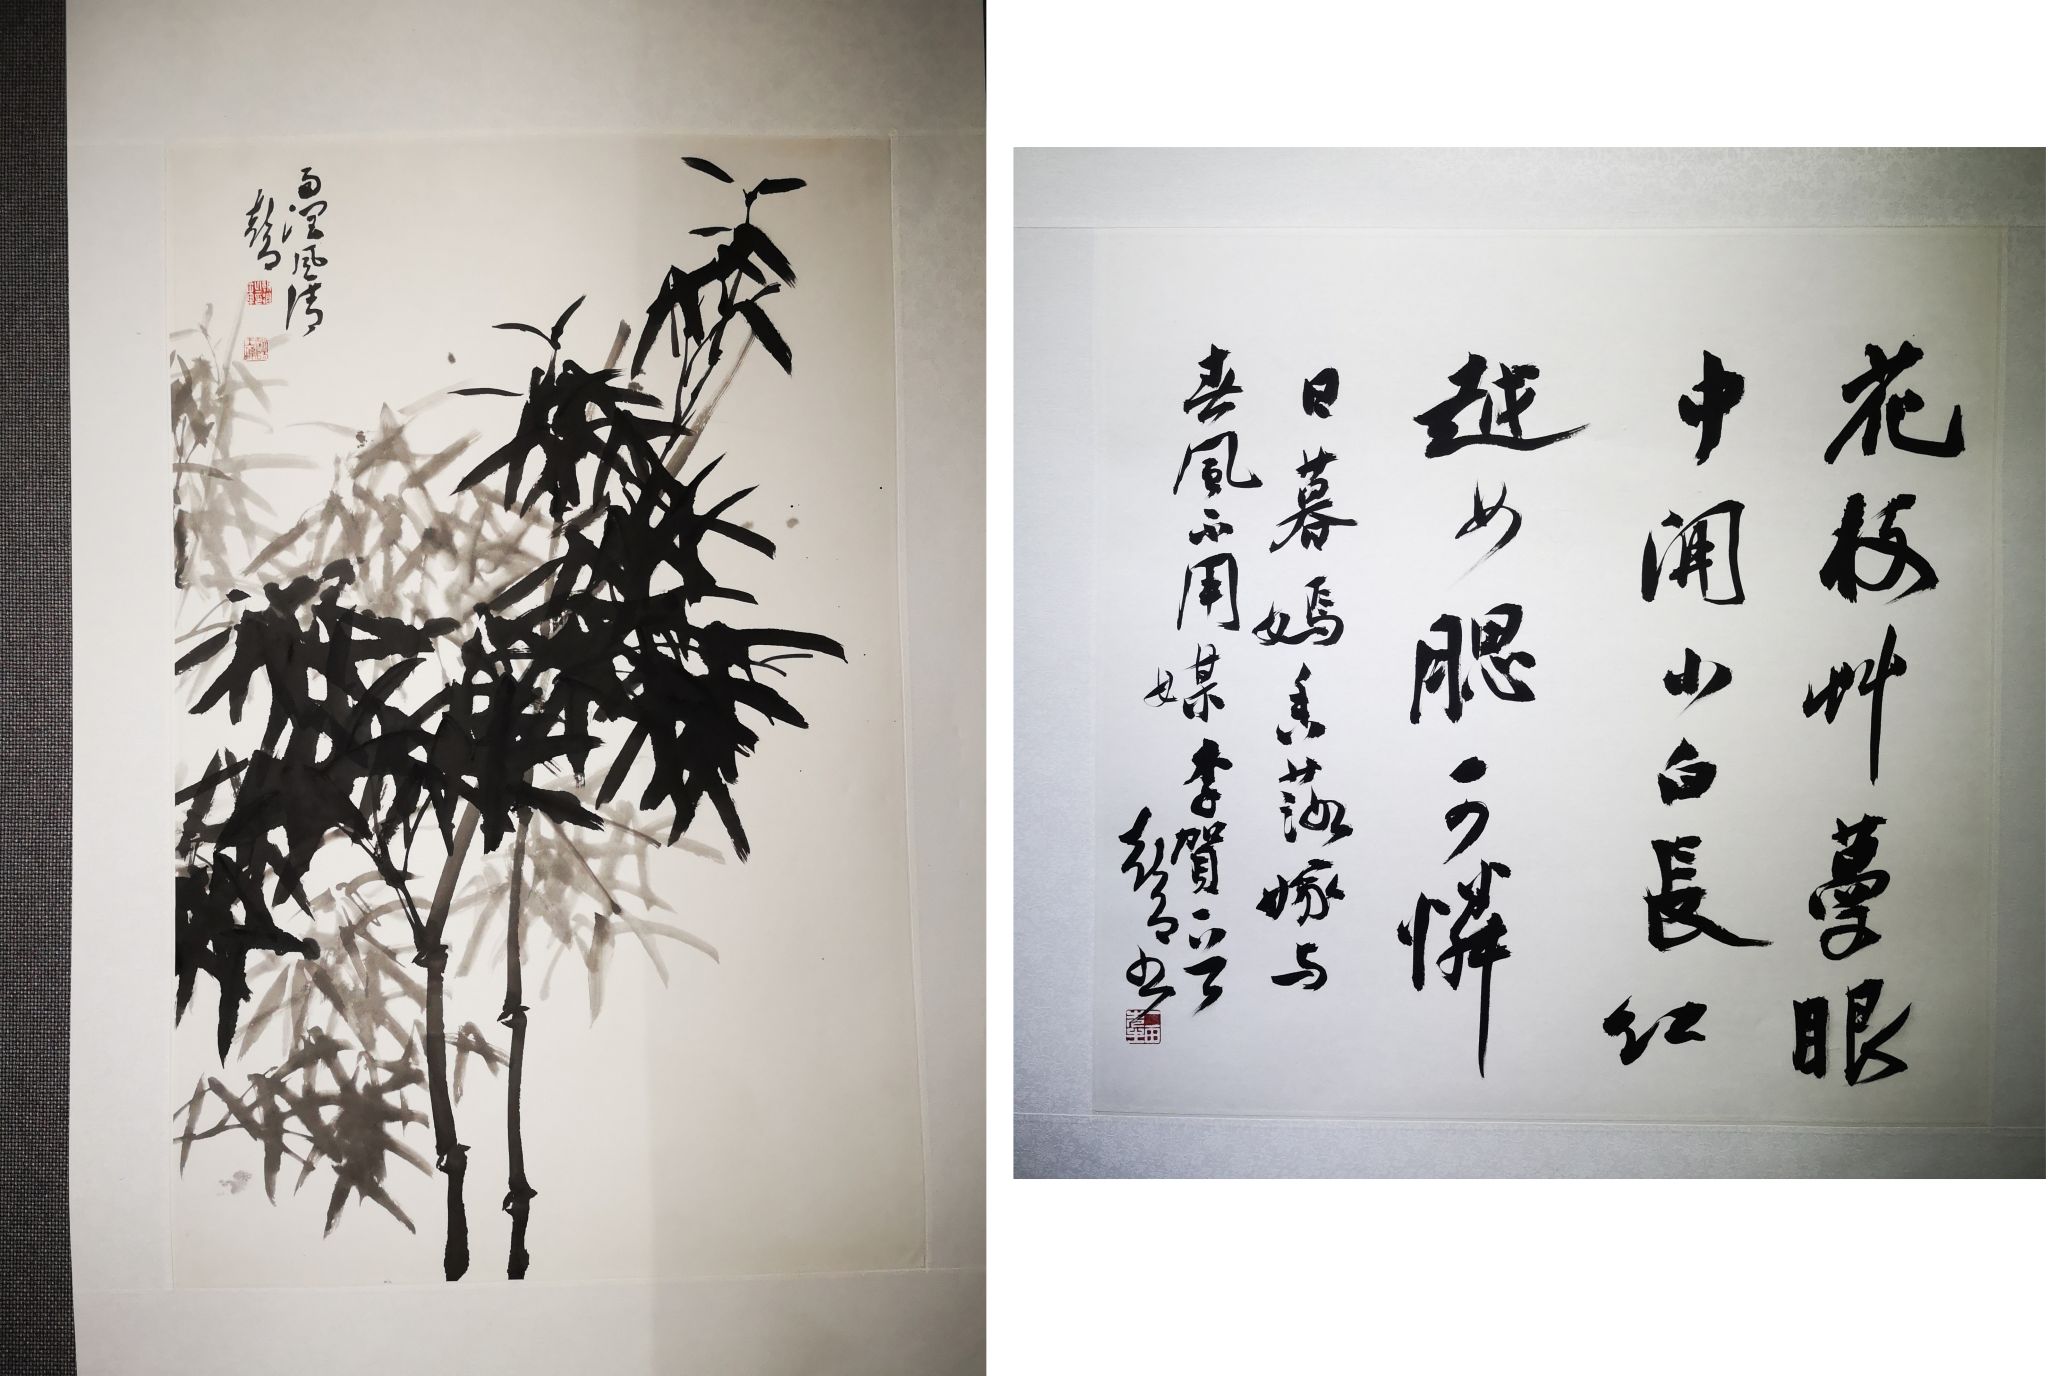 雨润風清
花枝草蔓眼
中開小白長紅
越女腮可憐
日暮嫣香落嫁与
春風不用媒李賀一首